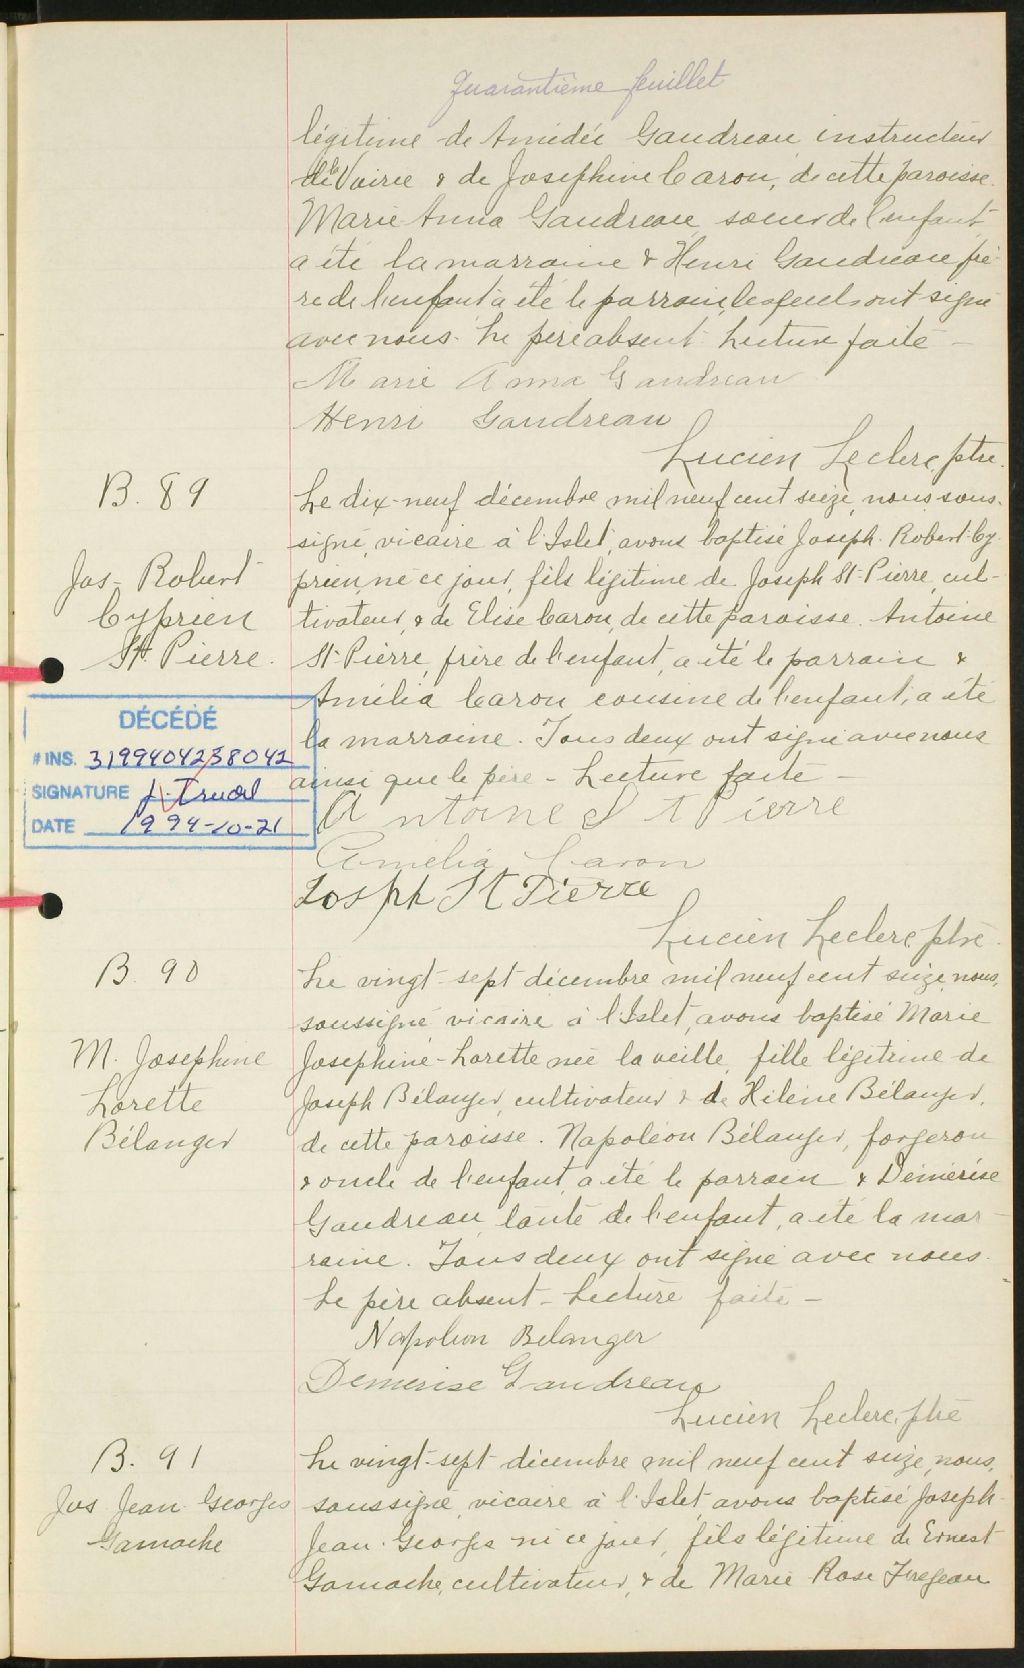 Quarantième feuillet
légitime de Amédée Gaudreau instructeur
de Voirie & de Josephine Caron, de cette paroisse.
Marie Anna Gaudreau, soeur de l'enfant,
a été la marraine & Henri Gaudreau frè-
re de l'enfant a été le parrain, lesquels ont signé
avec nous. Le père absent. Lecture faite -
Marie Anna Gaudreau
Henri Gaudreau
Lucien Leclerc, ptre.
B. 89
Jos - Robert
Cyprien
St Pierre.
Le dix-neuf décembre mil neuf cent seize, nous sous-
signé, vicaire à l'Islet, avons baptisé Joseph-Robert-Cy-
prien, né ce jour, fils légitime de Joseph St-Pierre, cul-
tivateur, & de Elise Caron, de cette paroisse. Antoine
St-Pierre, frère de l'enfant, a été le parrain &
Amélia Caron cousine de l'enfant, a été
la marraine. Tous deux ont signé avec nous
ainsi que le père - Lecture faite -
DÉCÉDÉ
# INS. 3199404238042
SIGNATURE L. Trudel
DATE 1994-10-21
Antoine St Pierre
Amélia Caron
Josph St Pierre
Lucien Leclerc, ptre.
B. 90
M. Josephine
Lorette
Bélanger
Le vingt-sept décembre mil neuf cent seize, nous,
soussigné, vicaire à l'Islet, avons baptisé Marie
Josephine-Lorette née la veille, fille légitime de
Joseph Bélanger, cultivateur & de Hélène Bélanger,
de cette paroisse. Napoléon Bélanger, forgeron
& oncle de l'enfant, a été le parrain & Démérise
Gaudreau, tante de l'enfant, a été la mar-
raine. Tous deux ont signé avec nous.
Le père absent - Lecture faite -
Napoleon Belanger
Demerise Gaudreau
Lucien Leclerc, ptre
B. 91
Jos Jean-Georges
Gamache
Le vingt-sept décembre mil neuf cent seize, nous,
soussigné, vicaire à l'Islet, avons baptisé Joseph-
Jean-Georges né ce jour, fils légitime de Ernest
Gamache, cultivateur, & de Marie Rose